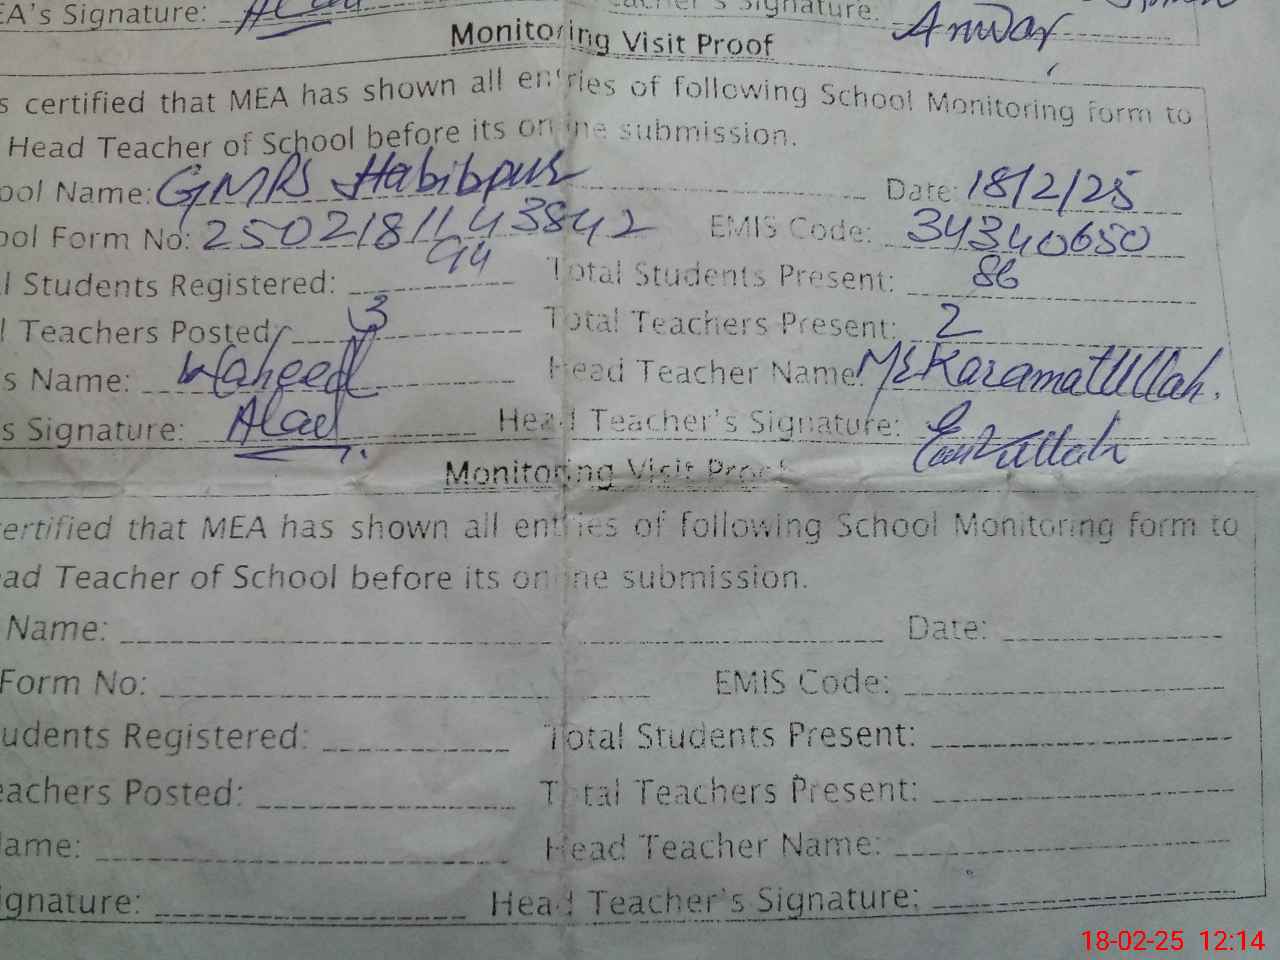 EA's Signature: Teacher's Signature: Anwar
Monitoring Visit Proof
s certified that MEA has shown all entries of following School Monitoring form to
Head Teacher of School before its online submission.
ool Name: GMPS Habibpur Date: 18/2/25
ool Form No: 2502181143842 EMIS Code: 34340650
l Students Registered: 94 Total Students Present: 86
l Teachers Posted: 3 Total Teachers Present: 2
s Name: Waheed Head Teacher Name: Mr Karamatullah.
s Signature: Head Teacher's Signature:
Monitoring Visit Proof
ertified that MEA has shown all entries of following School Monitoring form to
ad Teacher of School before its online submission.
Name: Date:
Form No: EMIS Code:
udents Registered: Total Students Present:
eachers Posted: Total Teachers Present:
ame: Head Teacher Name:
ignature: Head Teacher's Signature:
18-02-25 12:14